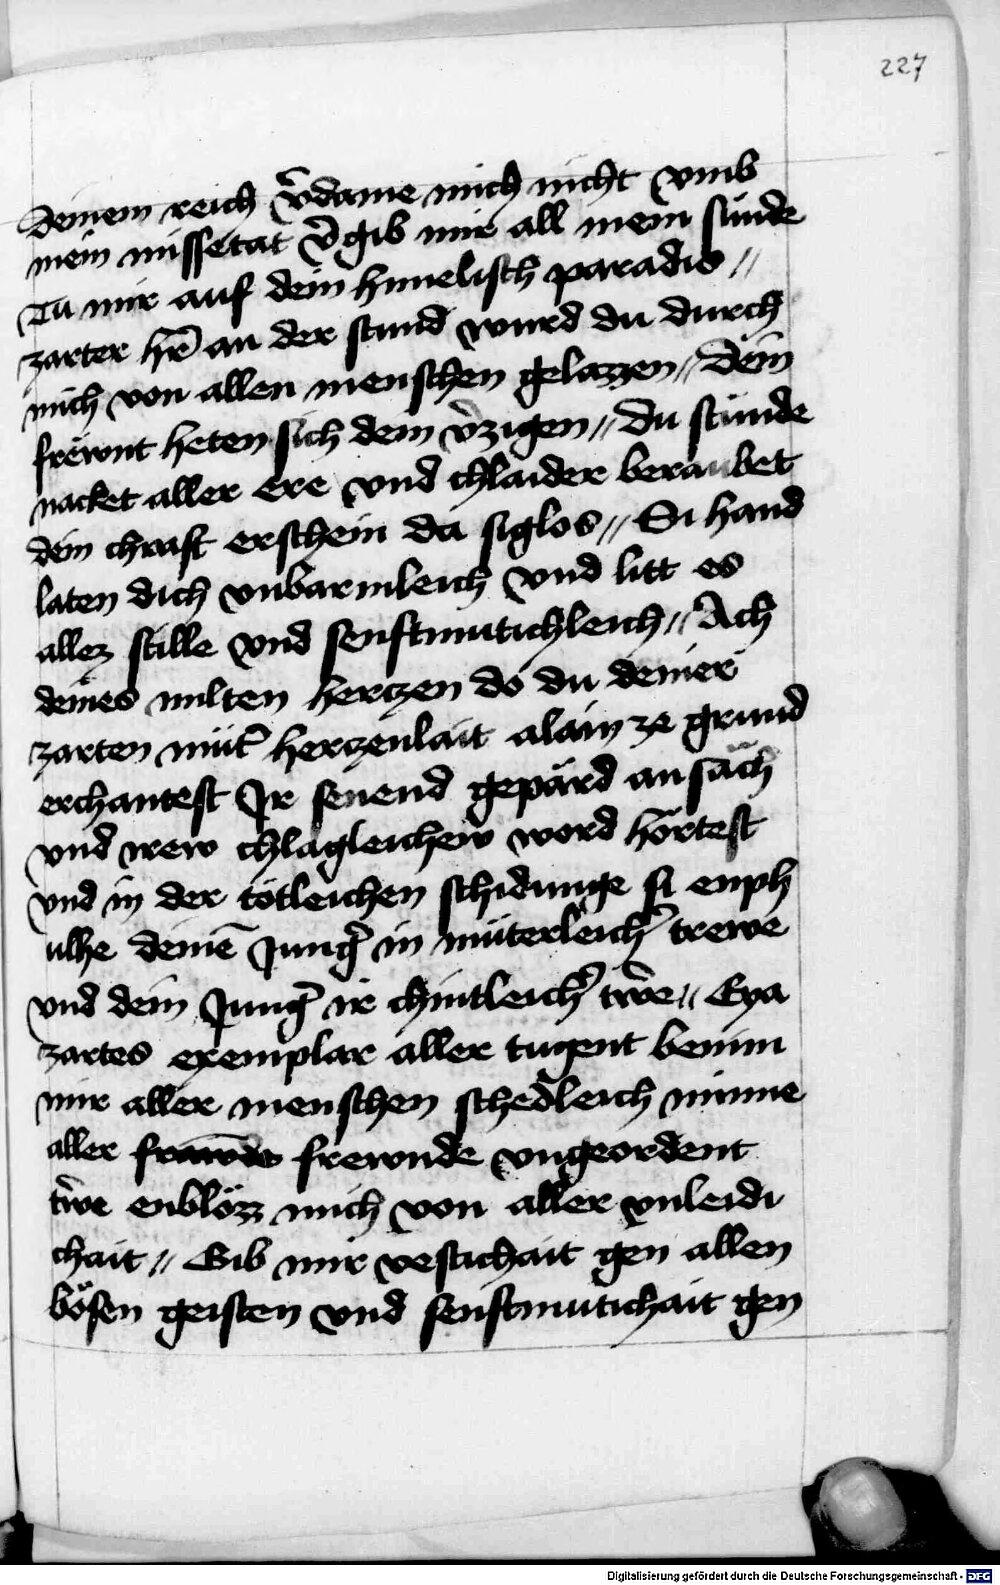 227
deinem reich v̄dame mich nicht vmb
mein missetat v̄gib mir all mein sünde
Tu mir auf dein himelisch paradis //
zarter hr̄ an der stund wurd du durch
mich von allen menschen gelazzen // Dein
frëwnt heten sich dein v̄zigen // Du stünde
nacket aller ere vnd chlaider beraubet
dein chraft erschein da siglos // Si hand
laten dich vnbarmleich vnd litt es
allez stille vnd senftmutichleich // Ach
deines milten herczen do du deiner
zarten müt̄ herczenlait alain ze grund
erchantest Ir senend gepärd an säch
vnd irew chlägleichew word hörtest
vnd in der tötleichen schidunge si enph
ulhe deinē Junḡ in müterleich̄ trewe
vnd dein Junḡ ir chintleich̄ tr̄we // Eya
zartes exemplar aller tugent benim
mir aller menschen schedleich minne
aller frewnde vngeordent
tr̄we enblözz mich von aller vnleidi
chait // Gib mir vestichait gen allen
bösen geisten vnd senftmutichait gen
Digitalisierung gefördert durch die Deutsche Forschungsgemeinschaft - DFG